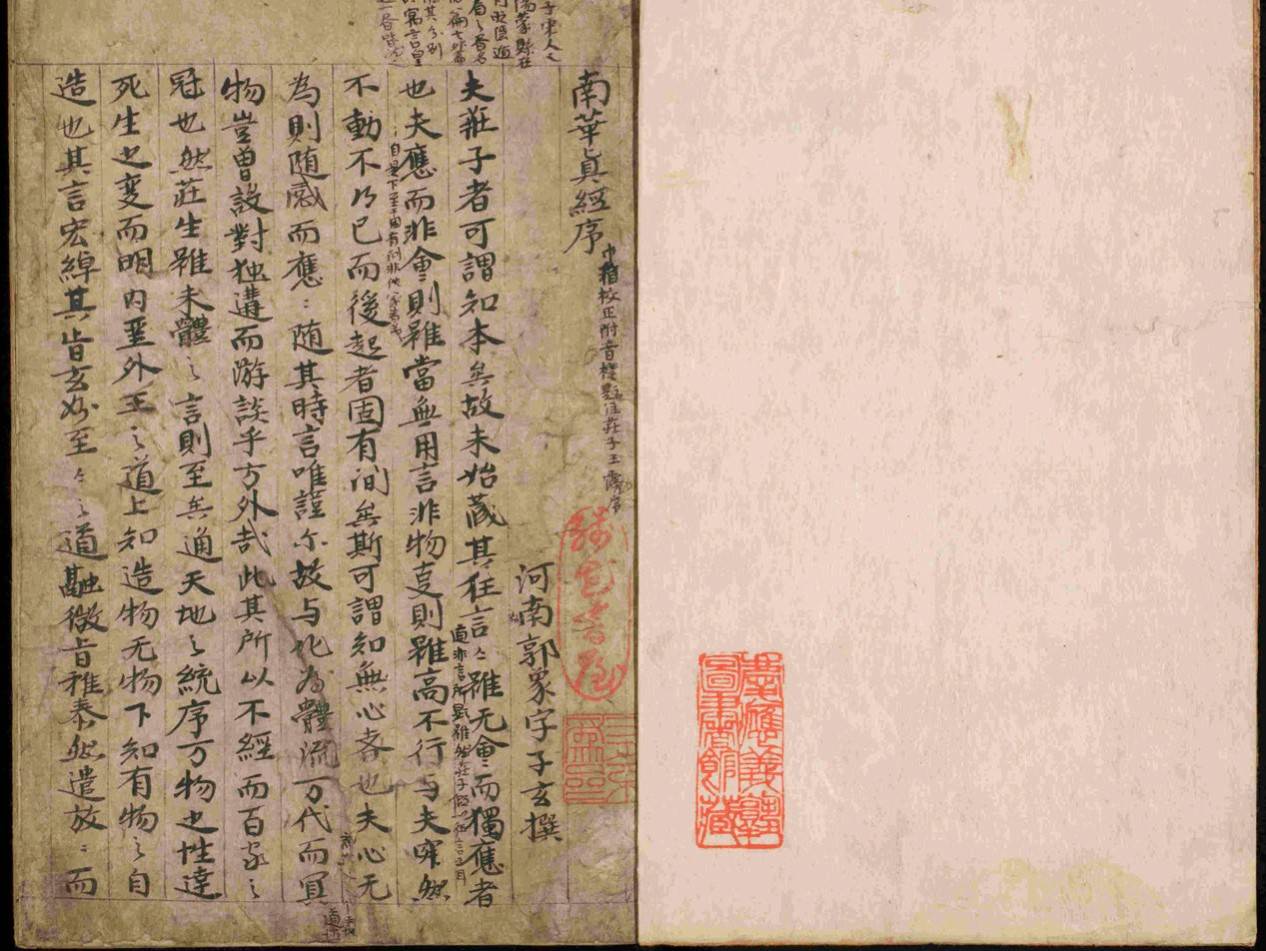 慶應義塾
圖書館藏
南華真經序
河南郭象字子玄撰
夫莊子者可謂知本矣故未始藏其狂言〻雖无會而獨應者
也夫應而非會則雖當無用言非物叓則雖高不行与夫寂然
不動不乃已而後起者固有间矣斯可謂知無心者也夫心无
為則随感而應〻随其時言唯謹尓故与化為體流万代而冥
物豈曾設對独遘而游談乎方外哉此其所以不經而百家之
冠也然莊生雖未體之言則至矣通天地之統序万物之性達
死生之変而明内聖外王之道上知造物无物下知有物之自
造也其言宏綽其旨玄妙至〻之道融微旨雅泰然遣放〻而